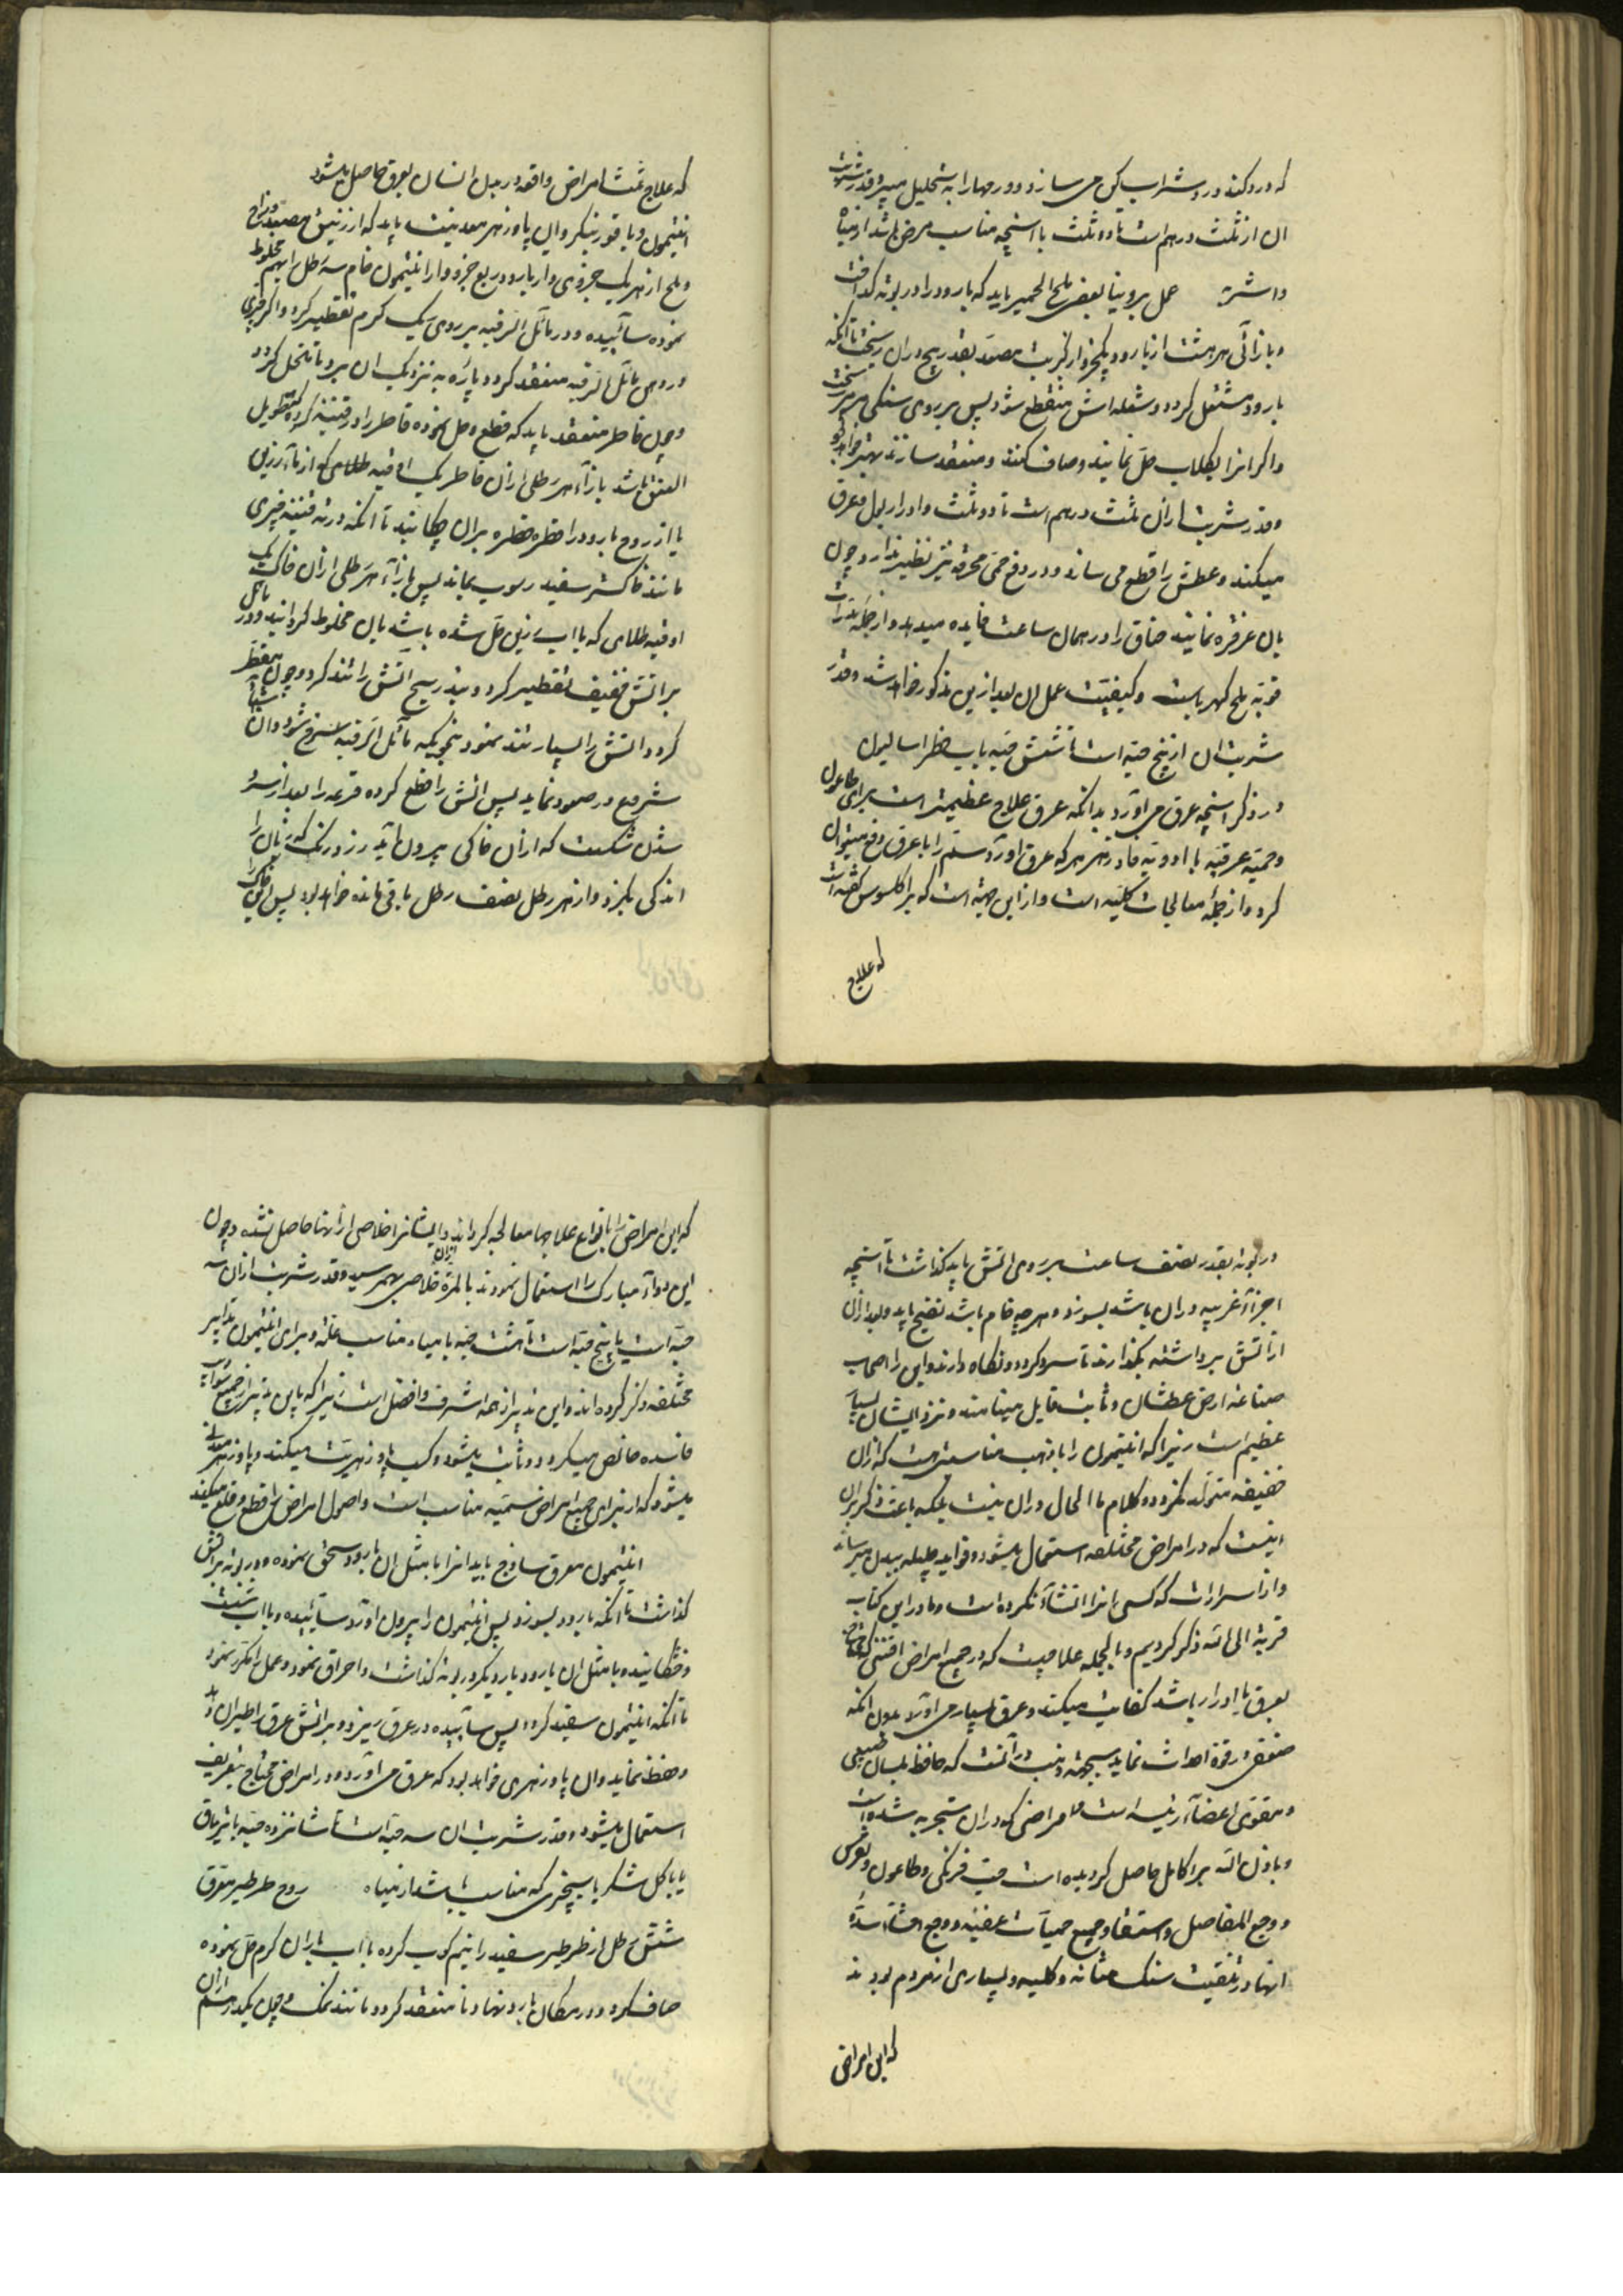 که درد کند در دو شراب یکی می سازد و ورمها را به تحلیل میبرد و قدر شربت
ان از ثلث درهم است تا دو ثلث با انچه مناسب مرض باشد از میاه
و اشربه عمل برونیا بعضی ملح الحمیر باید که بارود را در بوته کداخت
و بازآئی هر هشت از بارود یکجزو از کبریت مصعد بتدریج در ان ریخت تا انکه
بارود مشتعل کردد و شعله اش منقطع شود پس بر روی سنکی مرمر ریخت
و اکر انرا بکلاب حل نمایند و صاف کنند و منعقد سازند بهتر خواهد بود
و قدر شربت ازان ثلث درهم است تا دو ثلث و ادرار بول و عرق
میکند و عطش را قطع می سازد و در دفع حمی محرقه نیز نظیر ندارد و چون
بان غرغره نمایند خناق را در همان ساعت فایده میدهد و از جمله مدرات
قویه ملح کهرباست و کیفیت عمل ان بعد ازین مذکور خواهد شد و قدر
شربت ان از پنج حبه است تا شش حبه باب فطراسالیون
در ذکر انچه عرق می آورد بدانکه عرق علاج عظیمیست برای طاعون
و حمیه عرقیه با ادویه فادزهر هر که عرق اورد ستم را با عرق دفع میتوان
کرد و از جمله معالجات کلیه است و از این جهة است که براکلسوس کفته است
که علاج
که علاج ثلث امراض واقعه در بدن انسان بعرق حاصل میشود
انتیمون و یا قور نیکر و ان پادزهر معدنیست باید که از زیبق مصعد و زاج
و ملح از هر یک جزوی و از بارود ربع جزو و از انتیمون خام سه رطل را بهم مخلوط
نموده سائیده و در مائل الرقبه بر روی یک کرم تقطیر کرد و اکر چیزی
در دهن مائل الرقبه منعقد کردد پاره به نزدیک ان برد تا منحل کردد
و چون قاطر منعقد باید که قطع و حل نموده قاطر را در قنینه کرده که طویل
العنق باشد بازآء هر رطلی ازان قاطر یک اوقیه طلای که از مآء رزین
یا از روح بارود را قطره قطره بران چکانید تا انکه در ته قنینه چیزی
مانند خاکستر سفید رسوب نماید پس بازآء هر رطلی ازان خاک یک
اوقیه طلای که با اب رزین حل شده باشد بان مخلوط کردانید و در مائل
بر اتش خفیف تقطیر کرد و بتدریج اتش را تند کرد و چون مقطر
کردد اتش را بسیار تند نمود بنحویکه مائل الرقبه سرخ شود و ان
شروع در صعود نماید پس اتش را قطع کرده قرعه را بعد از سرد
شدن شکست که ازان خاکی بیرون آید زرد رنک که زبان را
اندکی بکزد و از هر رطل نصف رطل باقی مانده خواهد بود پس این خاک را
در بوته بقدر نصف ساعت بر روی اتش باید کذاشت تا انچه
اجزآء غریبه در ان باشد بسوزد و هر چه خام باشد نضج یابد و بعد ازان
از اتش برداشته بکذارند تا سرد کردد و نکاه دارند و این را اصحاب
صناعه ارض عطشان و ثابت قایل مینامند و نزد ایشان بسیار
عظیم است زیرا که انتیمون را با ذهب مناسبتی هست که ازان
خفیفه متولد نکردد و کلام ما الحال در ان نیست بلکه باعث ذکر ان
اینست که در امراض مختلفه استعمال میشود و فواید جلیله ببدن میرساند
و از اسراراست که کسی انرا انشآء نکرده است و ما در این کتاب
قربة الی الله ذکر کردیم و بالجمله علاجیست که در جمیع امراض
بعرق یا ادرار باشد کفایت میکند و عرق بسیار می آورد بدون انکه
ضعفی در قوة احداث نماید بجهة
و مقوی اعضآء رئیسه است و امراضی که در ان تجربه شده است
و باذن الله برا کامل حاصل کردیده است حب فرنکی و طاعون و نقرس
و وجع المفاصل و استسقا و جمیع حمیات عفنیه و وجع
انها در تفتیت سنک مثانه و کلیه و بسیاری از مردم بودند
که این امراض
که این امراض را بانواع علاجها معالجه کرداند و ایشانرا خلاصی از انها حاصل نشده و چون
این دوآء مبارک را استعمال نمودند بالمرة ازان خلاصی بهمرسید و قدر شربت ازان سه
حبه است یا پنج حبه است تا هشت حبه با میاه مناسب علة و برای انتیمون تدابیر
مختلفه ذکر کرده اند و این تدبیر از همه اشرف و افضل است زیرا که باین تدبیر از جمیع شوایب
فاسده خالص میکردد و ثابت میشود و کسب پادزهریت میکند و پادزهر معدنی
میشود که از برای جمیع امراض سمیه مناسب است و اصول امراض را قطع و قلع میکند
انتیمون معرق ساذج باید انرا با مثل ان بارود سحق نموده در بوته بر اتش
کذاشت تا انکه بارود بسوزد پس انتیمون را بیرون اورد سائیده و با اب شست
و خشکانیده با مثل ان بارود بار دیکر در بوته کذاشت و احراق نمود و عمل را مکرر نمود
تا انکه انتیمون سفید کردد پس سائیده در عرق ریزد و بر اتش عرق را طیران داد
و حفظ نماید و ان پادزهری خواهد بود که عرق می آورد و در امراض محتاج بتعریف
استعمال میشود و قدر شربت ان سه حبه است تا شانزده حبه با تریاق
یا با کل شکر یا بچیزی که مناسب باشد از میاه روح طرطیر معرق
شش رطل از طرطیر سفید را نیم کوب کرده با اب باران کرم حل نموده
صاف کرد و در مکان بارد نهاد تا منعقد کردد مانند نمک و چون یکدرهم ازان